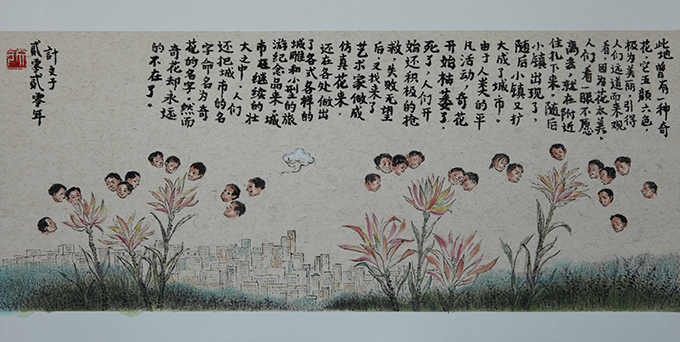 此地曾有种奇
花，它五颜六色，
极为美丽，引得
人们远道而来观
看，因为花太美，
人们看一眼不愿
离去，就在附近
住扎下来，随后
小镇出现了，
随后小镇又扩
大成了城市。
由于人类的平
凡活动，奇花
开始枯萎了，
死了，人们开
始还积极的抢
救，失败无望
后，又找来了
艺术家做成
仿真花来，
还在各处做出
了各式各样的
城雕和小型的旅
游纪念品来，城
市在继续的壮
大之中，人们
还把城市的名
字命名为奇
花的名字，然而
奇花却永远
的不在了。
计文于
贰零贰零年